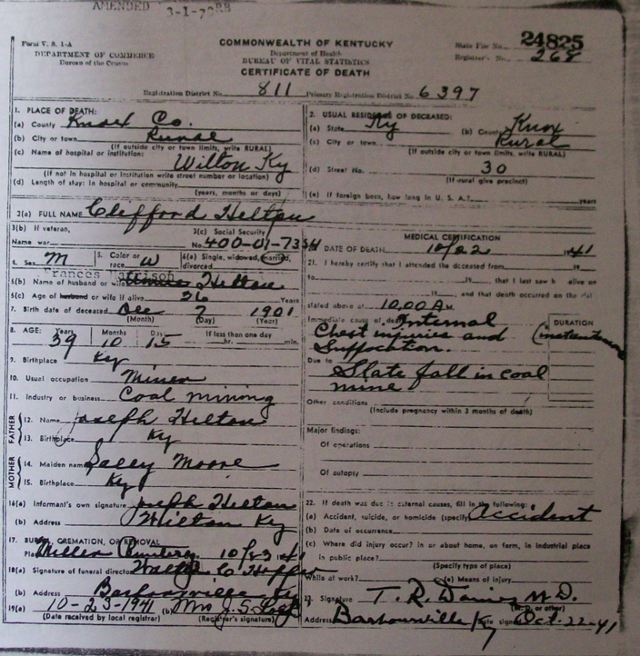 AMENDED 3-1-7
Form V. S. 1-A
DEPARTMENT OF COMMERCE
Bureau of the Census
COMMONWEALTH OF KENTUCKY
Department of Health
BUREAU OF VITAL STATISTICS
CERTIFICATE OF DEATH
State File No. 24825
Registrar's No. 268
Registration District No. 811 Primary Registration District No. 6397
1. PLACE OF DEATH:
(a) County Knox Co.
(b) City or town Rural
(If outside city or town limits, write RURAL)
(c) Name of hospital or institution:
Wilton Ky
(If not in hospital or institution write street number or location)
(d) Length of stay: In hospital or community
(years, months or days)
2. USUAL RESIDENCE OF DECEASED:
(a) State Ky (b) County Knox
(c) City or town Rural
(If outside city or town limits, write RURAL)
(d) Street No. 30
(If rural give precinct)
(e) If foreign born, how long in U. S. A.? years
3(a) FULL NAME Clefford Helton
3(b) If veteran,
Name war
3(c) Social Security
No. 400-01-73
4. Sex M 5. Color or race W 6(a) Single, widowed, married, divorced
Frances Harrison
6(b) Name of husband or wife Helton
6(c) Age of husband or wife if alive 26 Years
7. Birth date of deceased Dec 7 1901
(Month) (Day) (Year)
8. AGE: Years Months Days If less than one day
39 10 15 hr. min.
9. Birthplace Ky
10. Usual occupation Miner
11. Industry or business Coal mining
FATHER
12. Name Joseph Helton
13. Birthplace Ky
MOTHER
14. Maiden name Salley Moore
15. Birthplace Ky
16(a) Informant's own signature Joseph Helton
(b) Address Wilton Ky
17. BURIAL, CREMATION, OR REMOVAL
Place 10/ 41
18(a) Signature of funeral director
(b) Address Barbourville Ky
19(a) 10-23-1941 (b) Mrs J. S.
(Date received by local registrar) (Registrar's signature)
MEDICAL CERTIFICATION
20. DATE OF DEATH 10/22 1941
21. I hereby certify that I attended the deceased from 19
to 19 , that I last saw h alive on
19 , and that death occurred on the date
stated above at 10.00 AM
Immediate cause of death Internal
Chest injuries and
Suffocation.
DURATION
Due to Slate fall in coal
mine
Other conditions
(Include pregnancy within 3 months of death)
Major findings:
Of operations
Of autopsy
22. If death was due to external causes, fill in the following:
(a) Accident, suicide, or homicide (specify) Accident
(b) Date of occurrence
(c) Where did injury occur? in or about home, on farm, in industrial place
in public place?
(Specify type of place)
While at work? (e) Means of injury
23. Signature T. R. Davies M.D.
(M. D. or other)
Address Barbourville Ky Date signed Oct-22-41